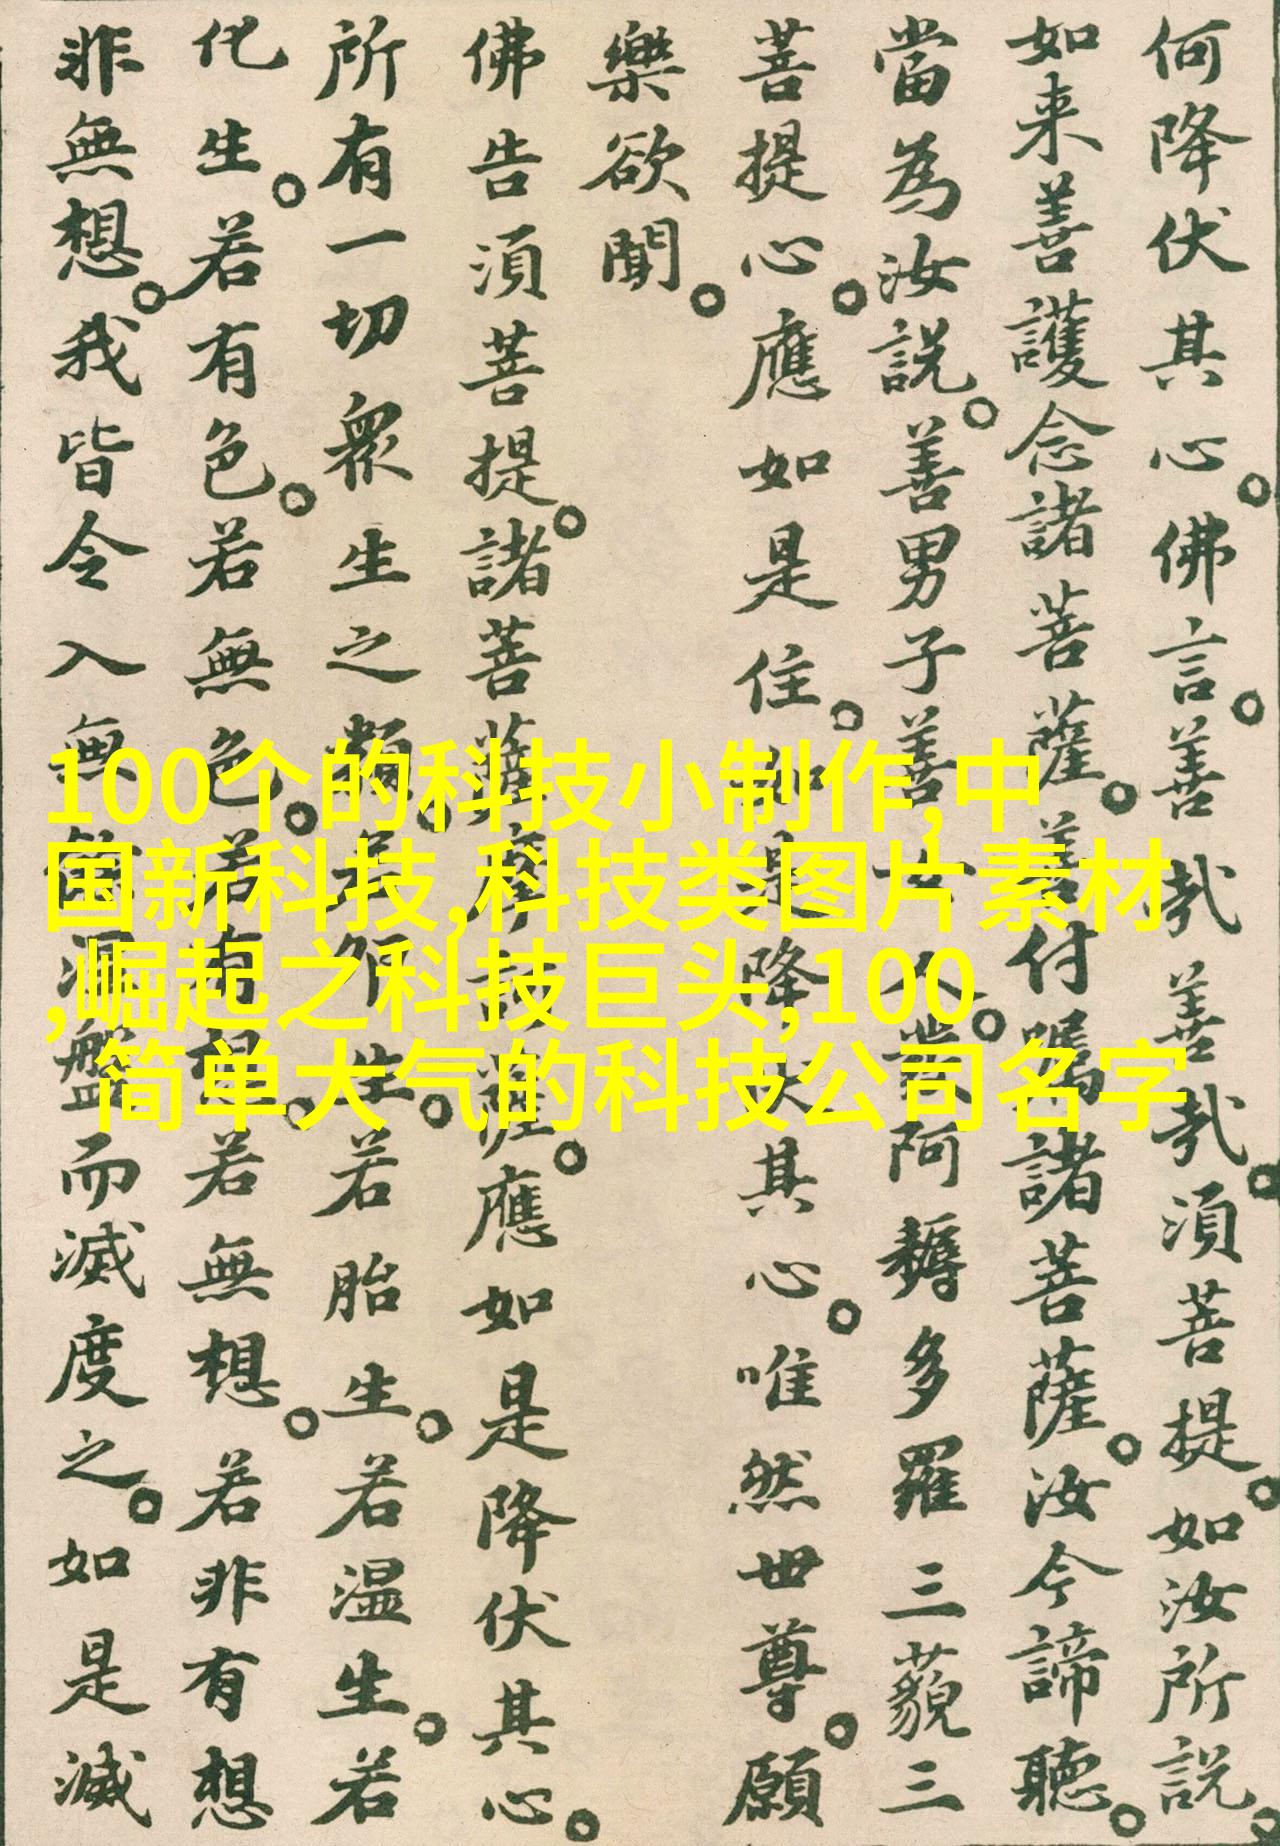 何降伏其心。佛言。善哉善哉。須菩提。如汝所説。
如来善護念諸菩薩。善付嘱諸菩薩。汝今諦聽。
當為汝説。善男子善女人。發阿耨多羅三藐三
菩提心。應如是住。如是降伏其心。唯然世尊。願
樂欲聞。
佛告須菩提。諸菩薩摩訶薩。應如是降伏其心。
所有一切衆生之類。若卵生。若胎生。若温生。若
化生。若有色。若無色。若有想。若無想。若非有想
非無想。我皆令入無餘涅盤而滅度之。如是滅
100个的科技小制作,中
国新科技,科技类图片素材
,崛起之科技巨头,100
简单大气的科技公司名字